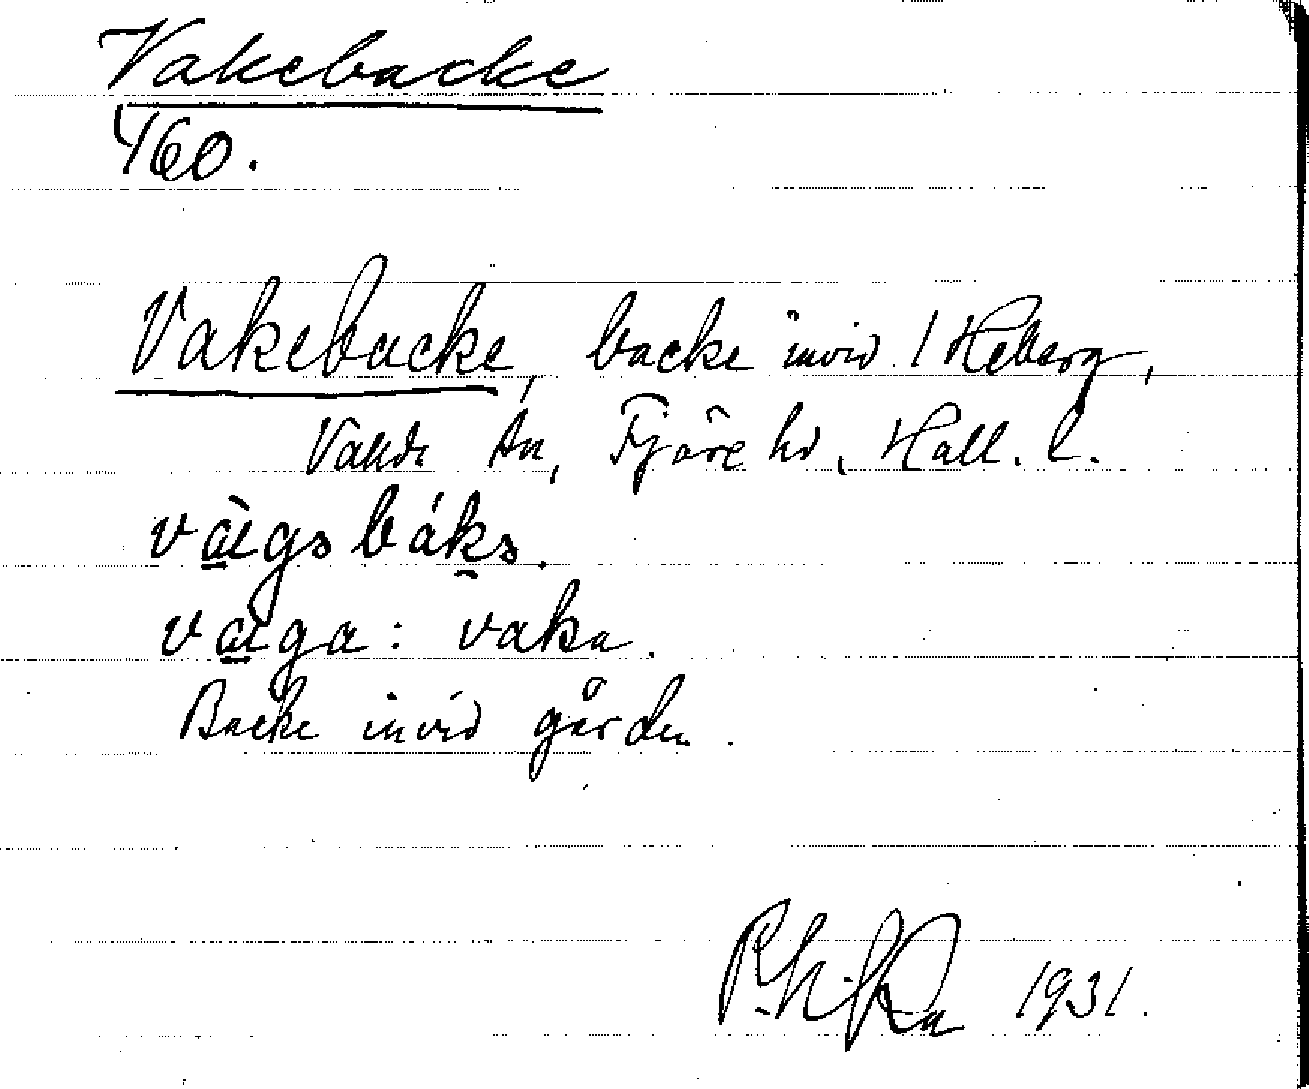 Vakebacke
460.
Vakebacke, backe invid 1 Heberg,
Valda sn, Fjäre hd, Hall. l.
vagsbáks.
vaga: vaka.
Backe invid gården.
1931.